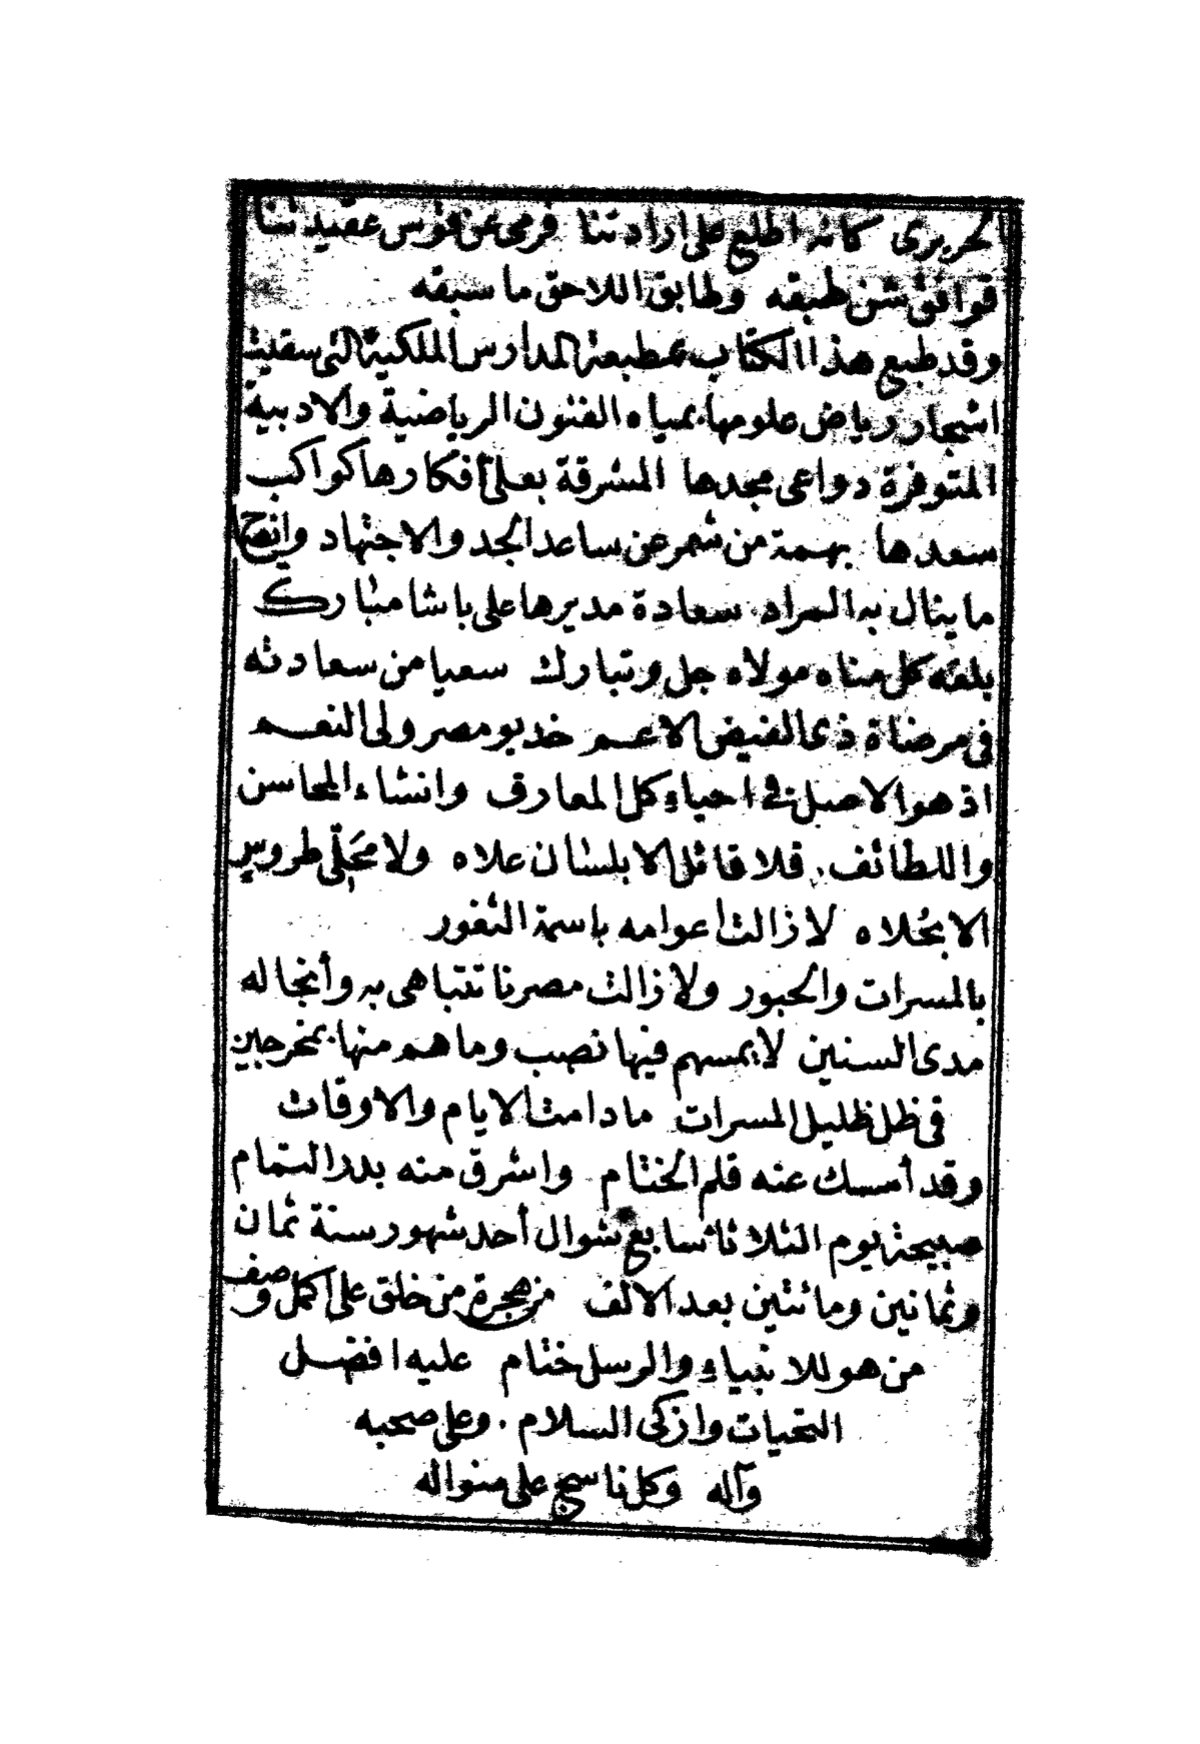 الحريرى كانه اطلع على ارادتنا فرمى عن قوس عقيدتنا
فوافق شن طبقه وطابق اللاحق ما سبقه
وقد طبع هذا الكتاب بمطبعة المدارس الملكية التى سقيت
اشجار رياض علومها بمياه الفنون الرياضية والادبية
المتوفرة دواعى مجدها المشرقة بعلى أفكارها كواكب
سعدها بهمة من شمر عن ساعد الجد والاجتهاد وانضح
ما ينال به المراد سعادة مديرها على باشا مبارك
بلغه كل مناه مولاه جل وتبارك سعيا من سعادته
فى مرضاة ذى الفيض الاعم خديو مصر ولى النعم
اذ هو الاصل فى احياء كل المعارف وانشاء المحاسن
واللطائف. فلا قائل الا بلسان علاه ولا محلى طروس
الا بحلاه لا زالت اعوامه باسمة الثغور
بالمسرات والحبور ولا زالت مصرنا تتباهى به وأنجاله
مدى السنين لا يمسهم فيها نصب وما هم منها بمخرجين
فى ظل ظليل المسرات ما دامت الايام والاوقات
وقد أمسك عنه قلم الختام واشرق منه بدر التمام
صبيحة يوم الثلاثا سابع شوال أحد شهور سنة ثمان
وثمانين ومائتين بعد الالف من هجرة من خلق على اكمل وصف
من هو للانبياء والرسل ختام عليه افضل
التحيات وازكى السلام. وعلى صحبه
وآله وكل ناسج على منواله